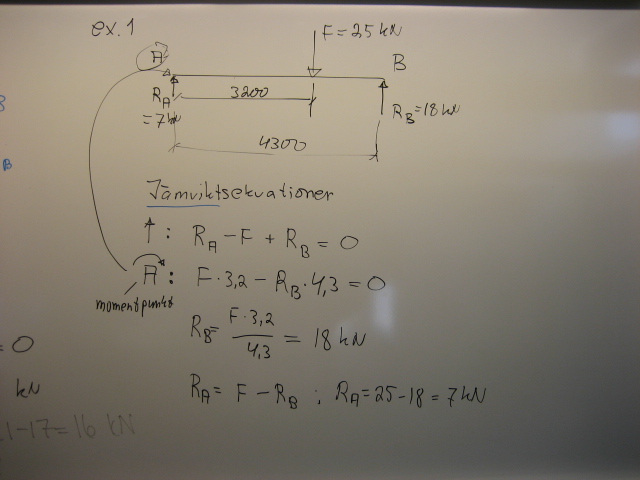 ex. 1
F = 25 kN
A
B
R_A = 7 kN
3200
R_B = 18 kN
4300
Jämviktsekvationer
↑: R_A - F + R_B = 0
A: F·3,2 - R_B·4,3 = 0
momentpunkt
R_B = F·3,2 / 4,3 = 18 kN
R_A = F - R_B ; R_A = 25 - 18 = 7 kN
= 0
kN
1-17 = 16 kN